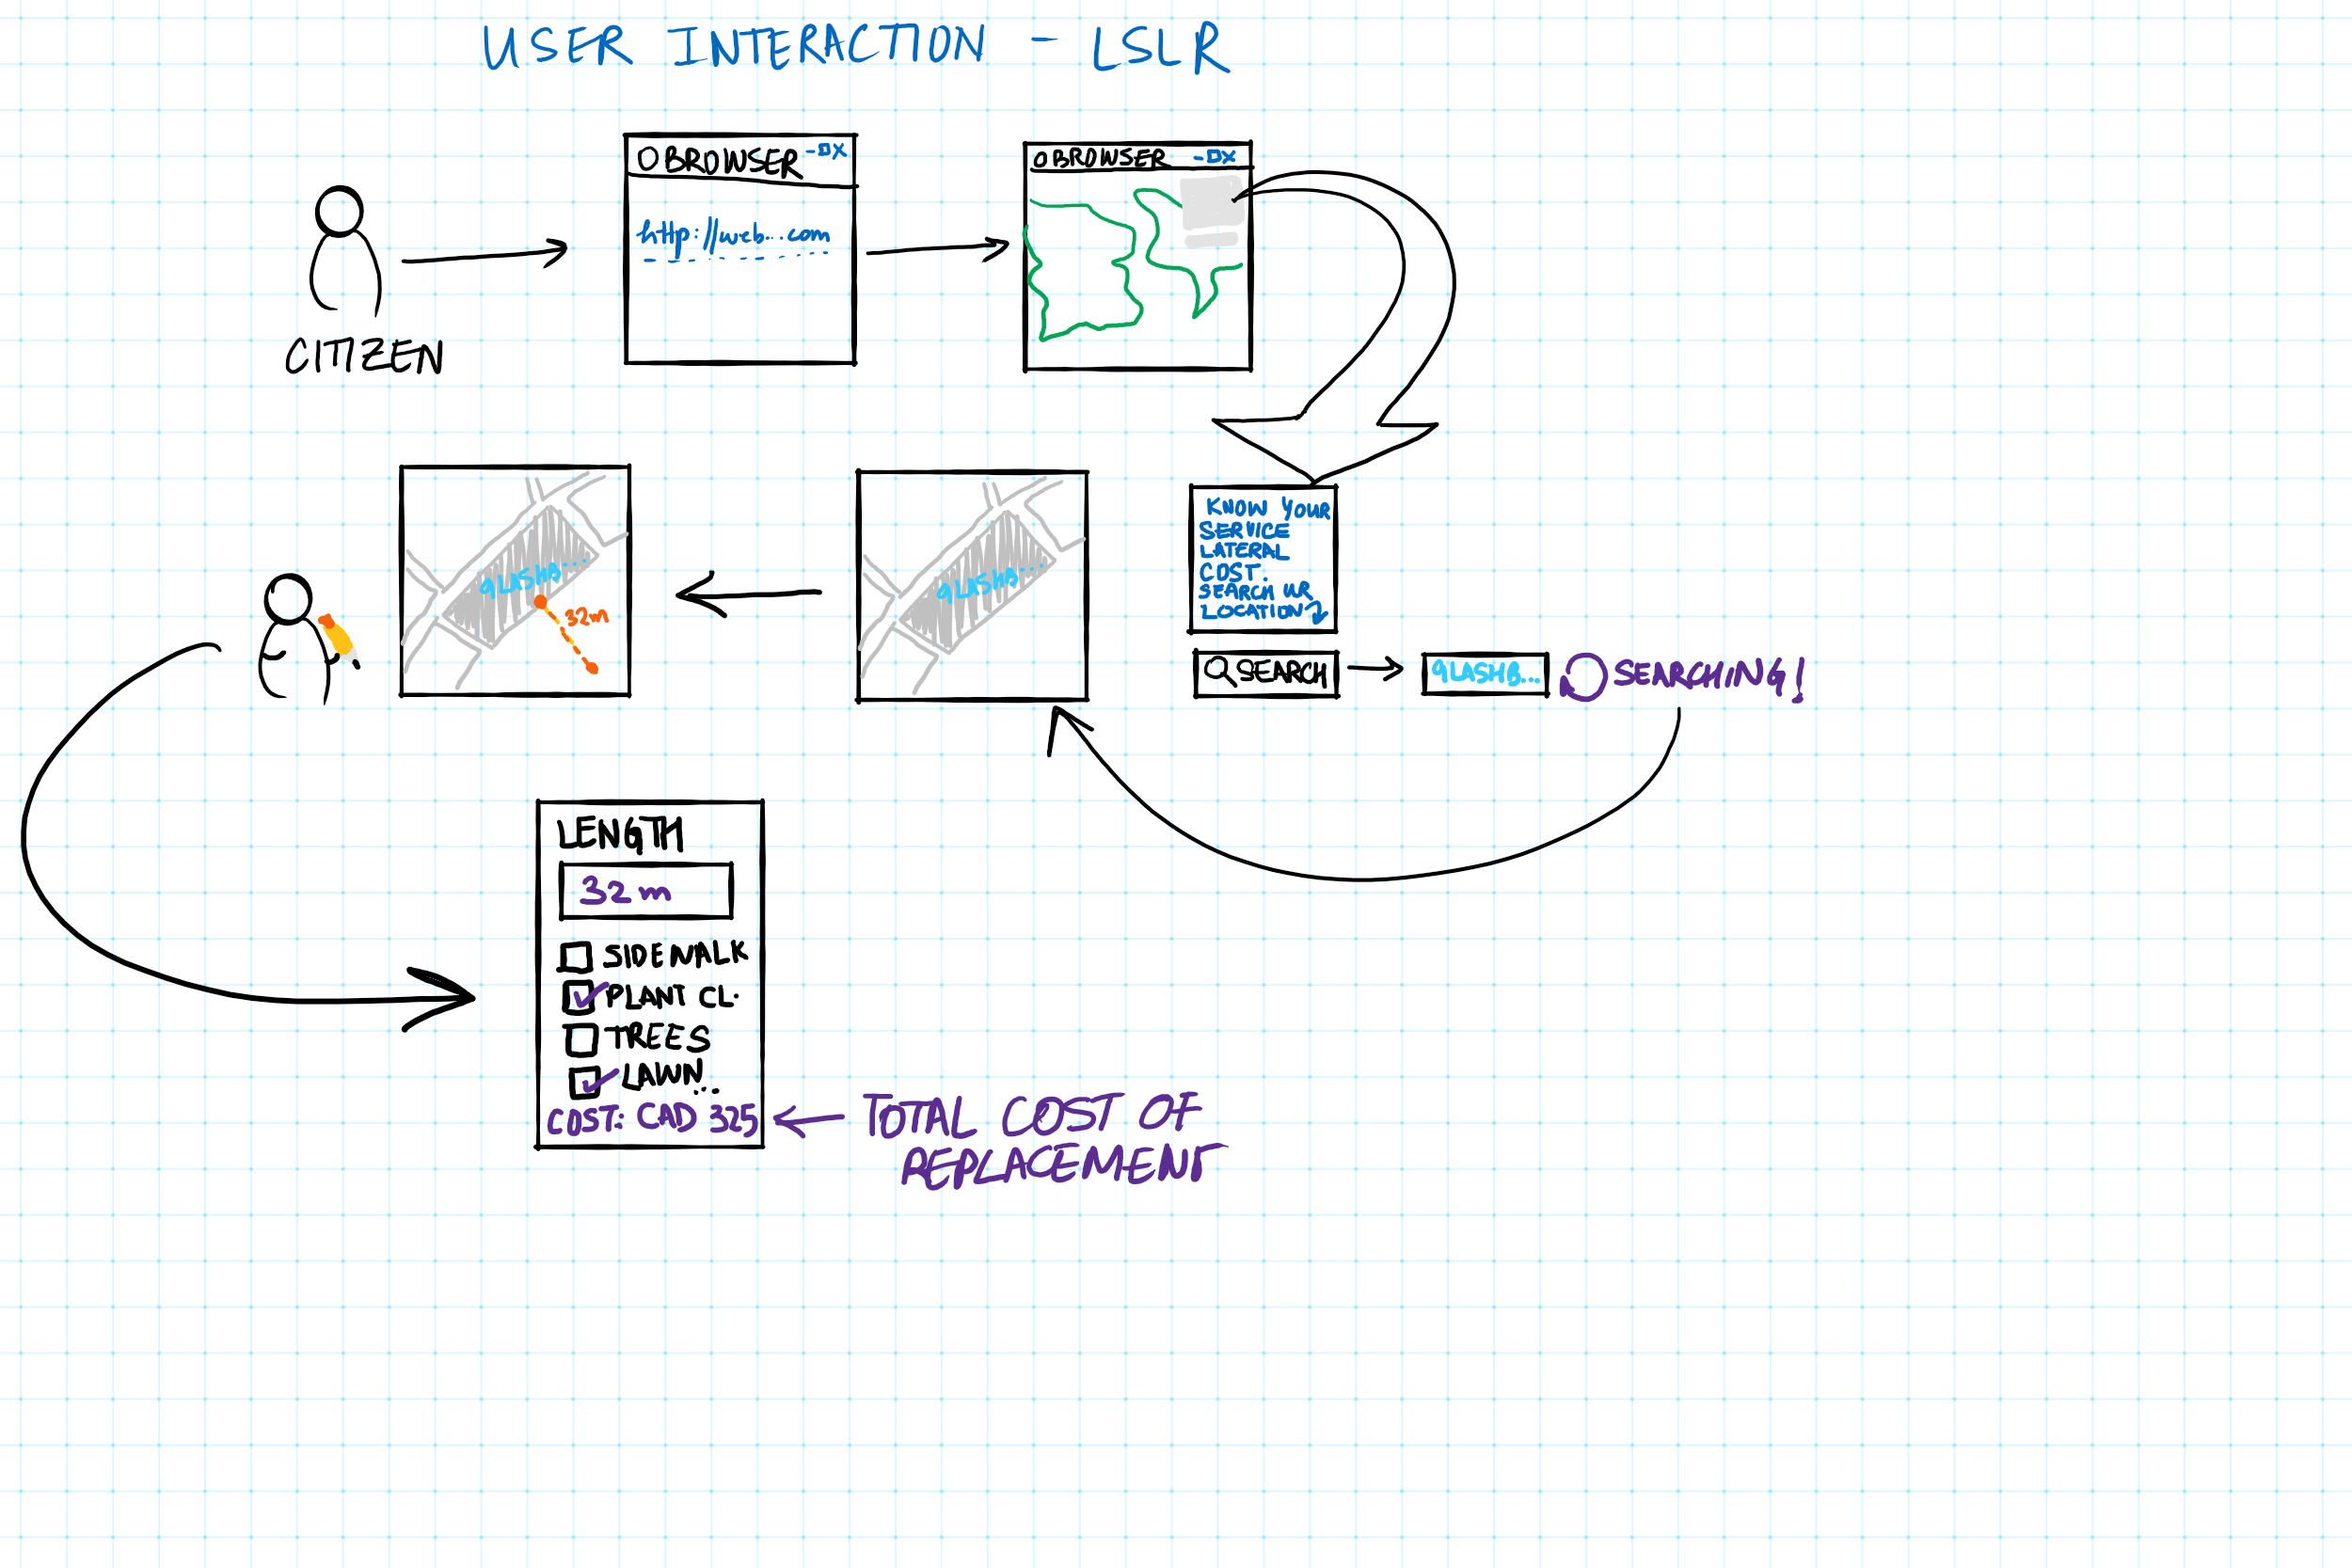 USER INTERACTION - LSLR
BROWSER -□X
http://web...com
BROWSER -□X
CITIZEN
KNOW YOUR
SERVICE
LATERAL
COST.
SEARCH UR
LOCATION
SEARCH
9LASHB...
SEARCHING!
9LASHB....
9LASHB....
32m
LENGTH
32m
SIDEWALK
PLANT CL.
TREES
LAWN...
COST: CAD 325
TOTAL COST OF
REPLACEMENT